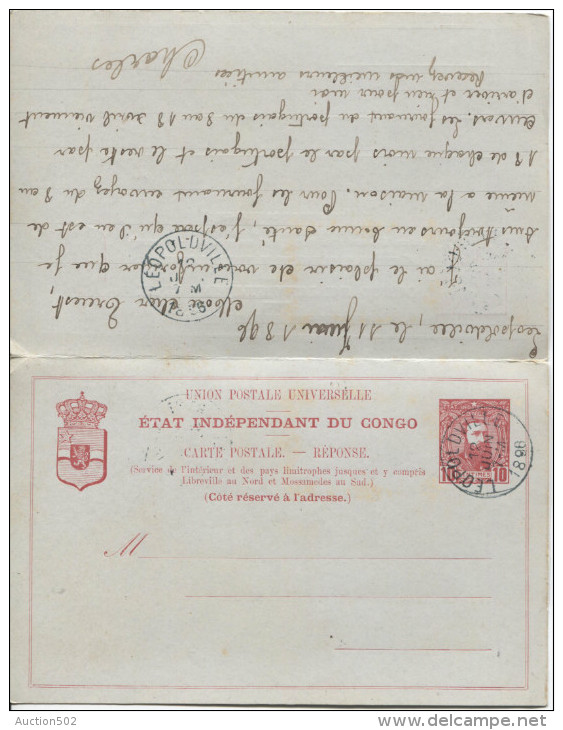 Leopoldville, le 11 Juin 1896
Mon cher Ernest,
J'ai le plaisir de t'informer que je
suis toujours en bonne santé, j'espère qu'il en est de
même a la maison. Pour les journaux envoyez du 3 au
18 de chaque mois par le portugais et le reste par
Anvers. Les journaux du portugais du 3 au 18 avril viennent
d'arriver et rien pour moi
Recevez mes meilleurs amitiés
Charles
LEOPOLDVILLE
UNION POSTALE UNIVERSELLE
ÉTAT INDÉPENDANT DU CONGO
CARTE POSTALE. — RÉPONSE.
(Service de l'intérieur et des pays limitrophes jusques et y compris
Libreville au Nord et Mossamedes au Sud.)
(Côté réservé à l'adresse.)
M
10 CENTIMES 10
LEOPOLDVILLE
JUIN
1896
Auction502
www.delcampe.net